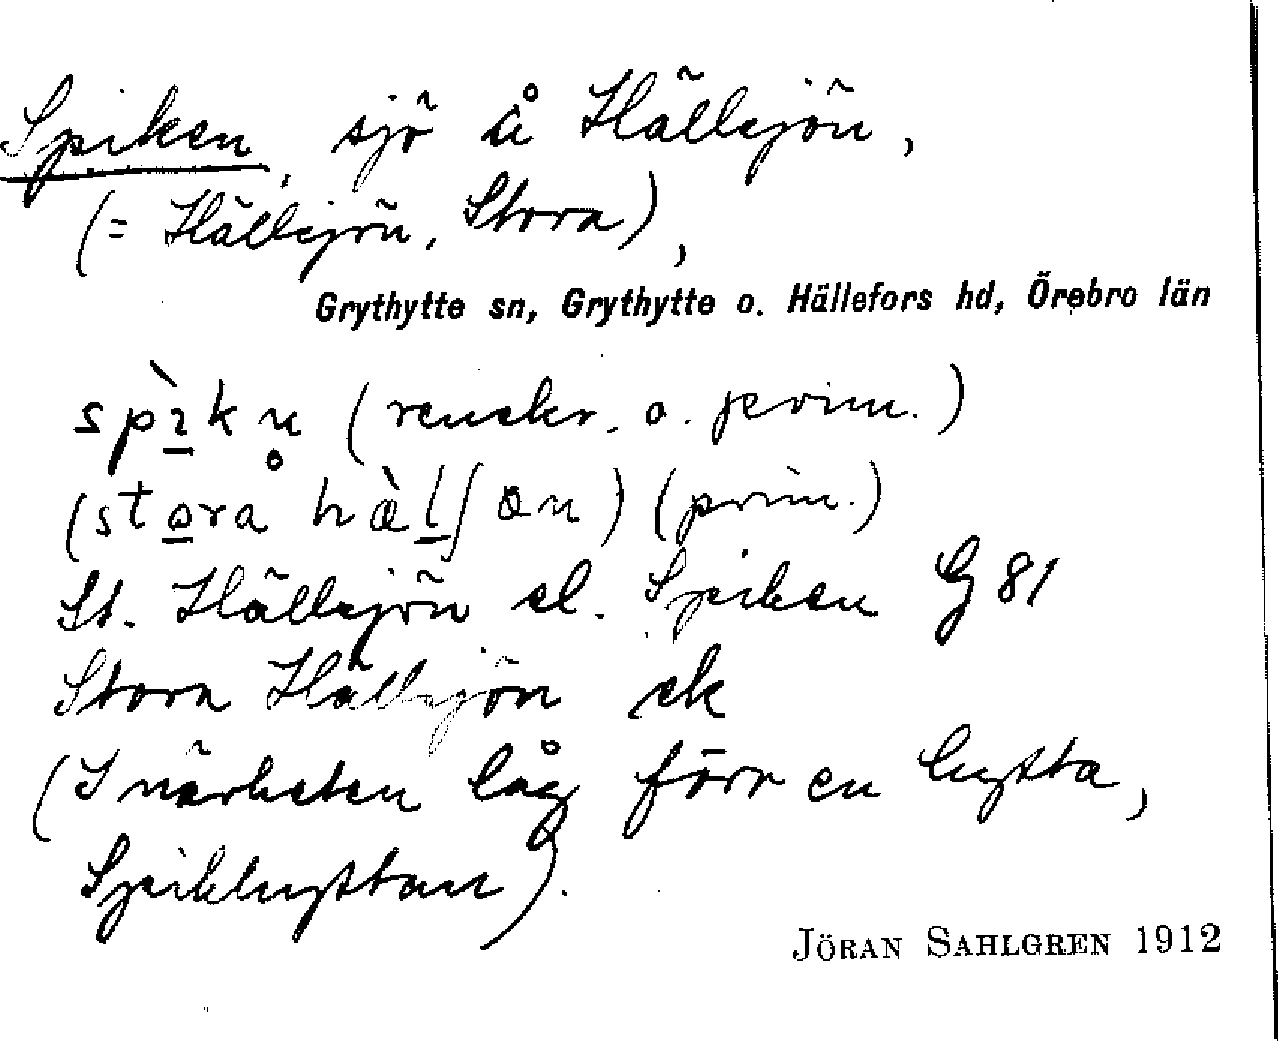 Spiken, sjö å Hällsjön,
(= Hällsjön, Stora),
Grythytte sn, Grythytte o. Hällefors hd, Örebro län
spı̀kn̥ (renskr. o. prim.)
(stora hæ̀lʃøn) (prim.)
St. Hällsjön el. Spiken G 81
Stora Hällsjön ek
(I närheten låg förr en hytta,
Spikhyttan).
JÖRAN SAHLGREN 1912